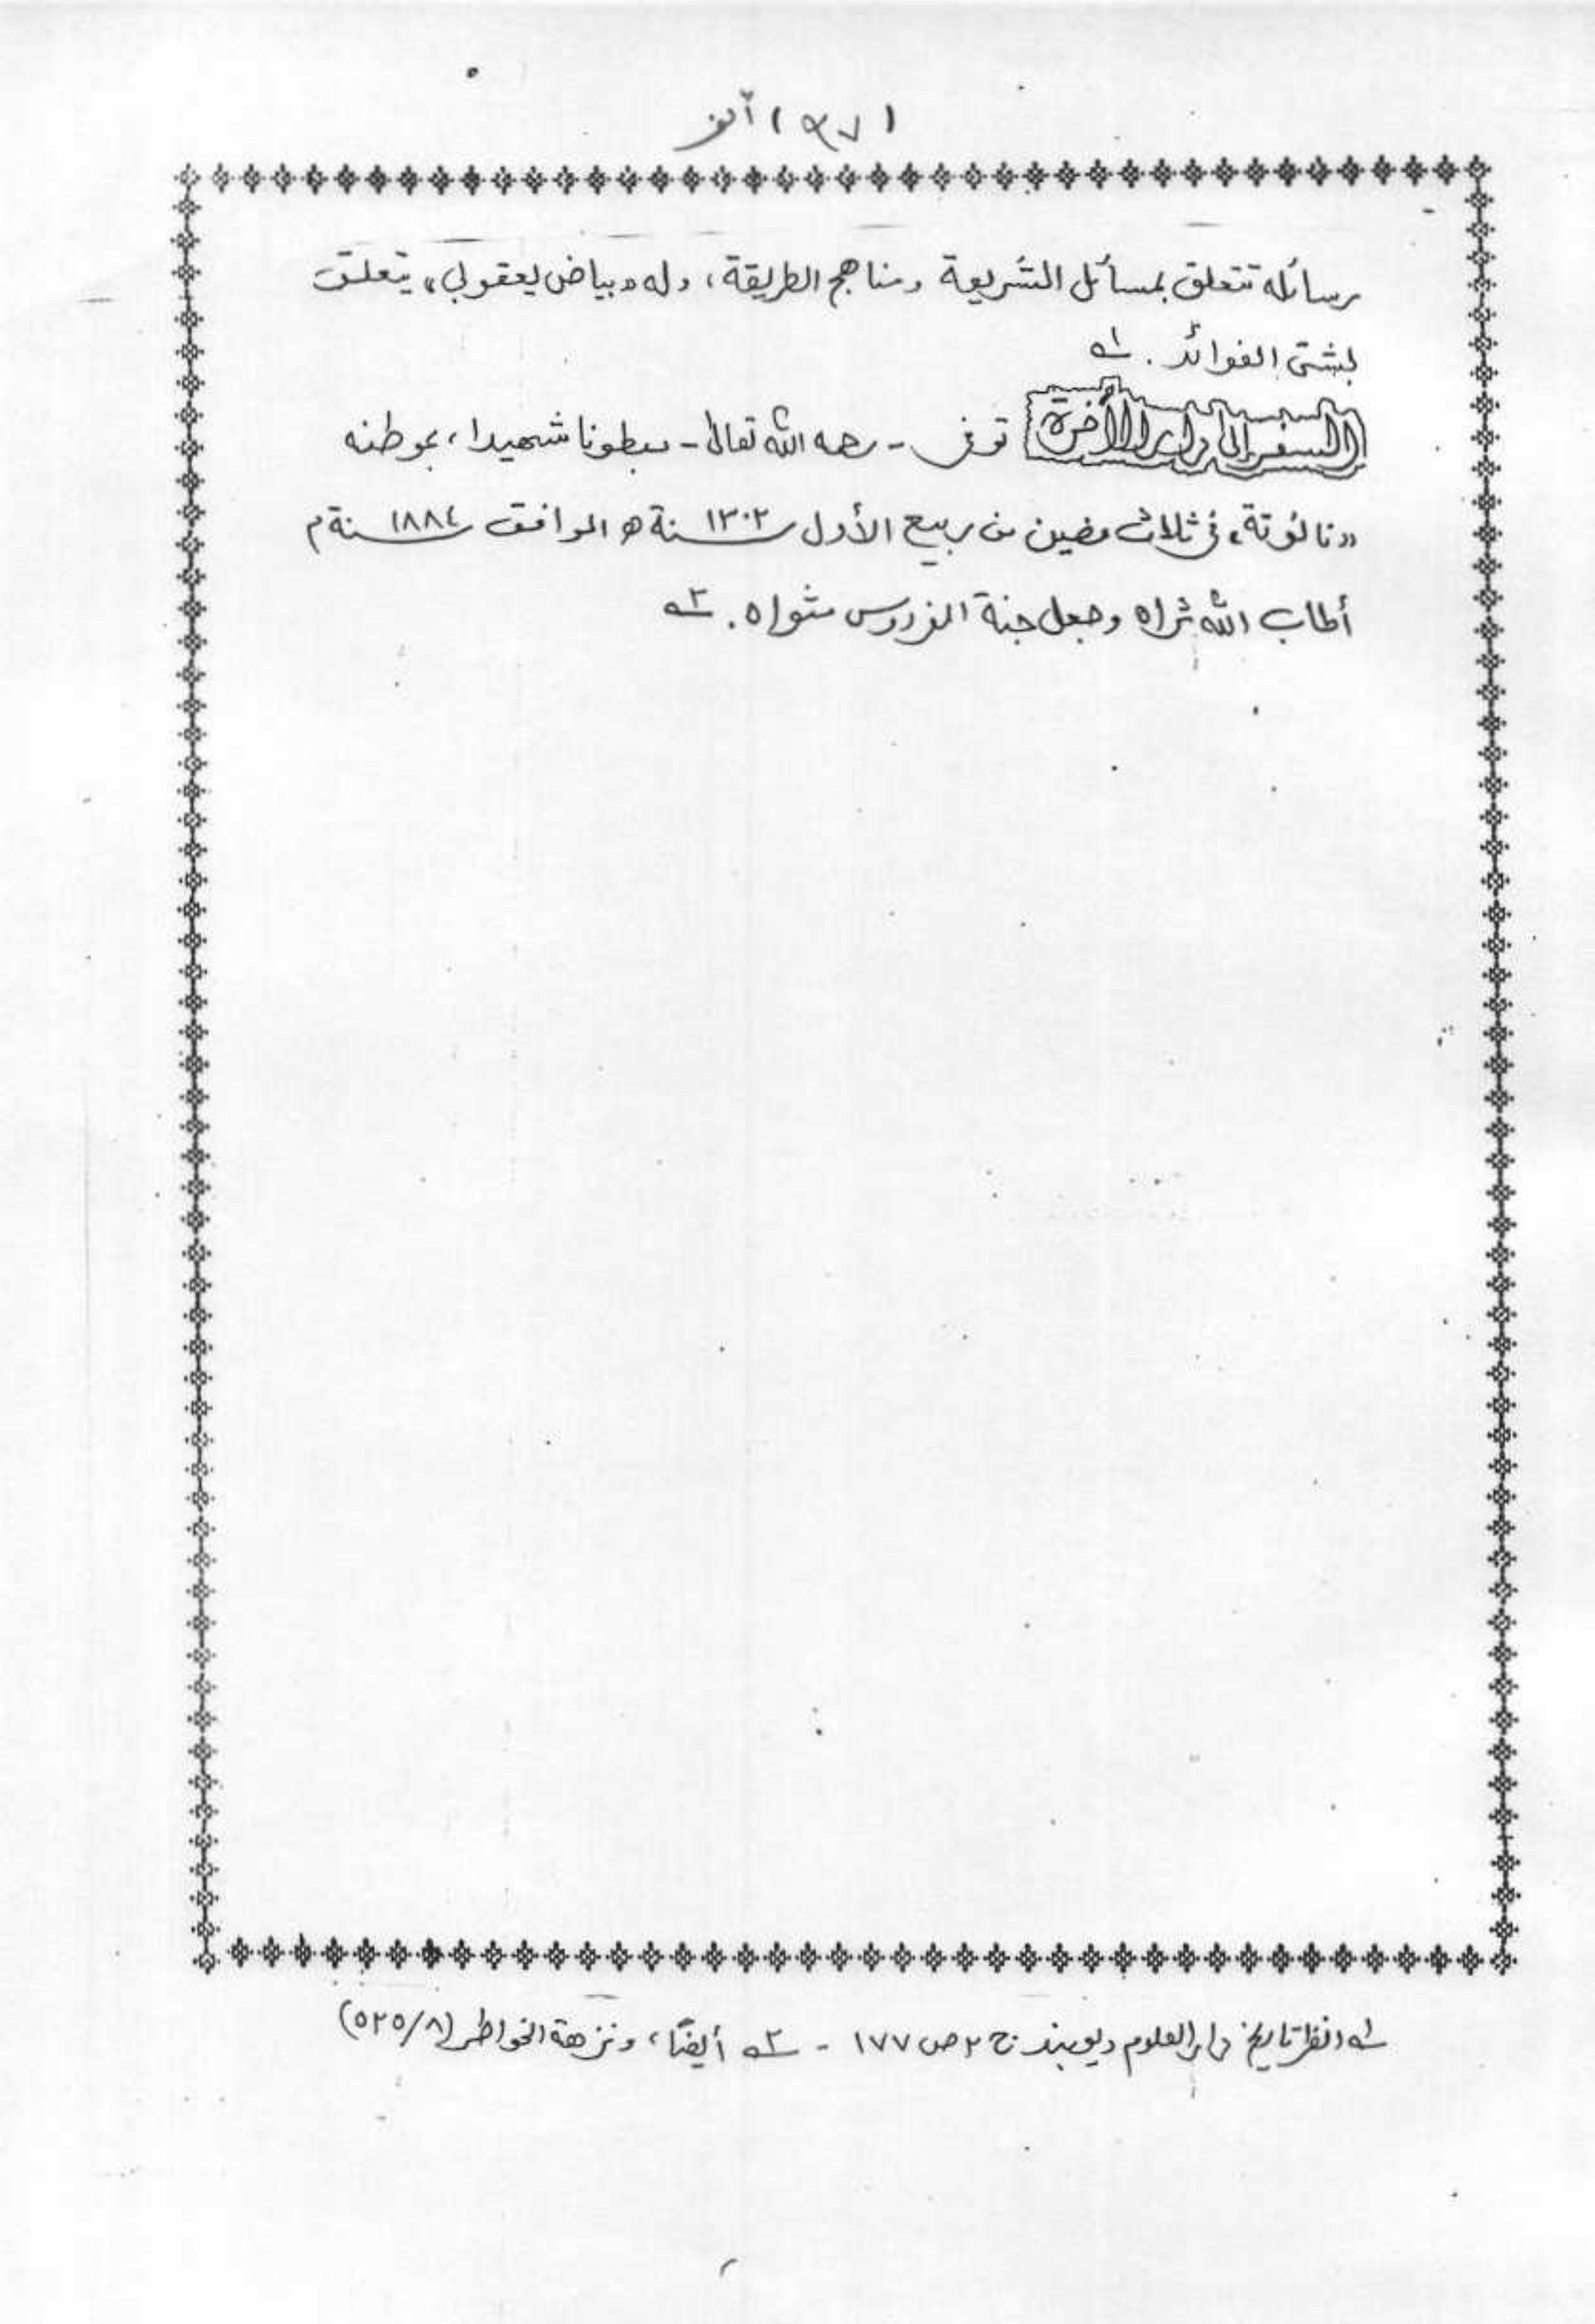 (٩٧) ألف
رسائله تتعلق بمسائل الشريعة ومناهج الطريقة، وله «بياض يعقوبي» يتعلق
بشتى الفوائد. ١ـه
السفر إلى دار الآخرة توفى - رحمه الله تعالى - مبطونا شهيدا، بموطنه
«نانوتة» في ثلاث مضين من ربيع الأول سنة ١٣٠٢ ه الموافق سنة ١٨٨٤ م
أطاب الله ثراه وجعل جنة الفردوس مثواه. ٢ـه
١ـه انظر تاريخ دار العلوم ديوبند ج ٢ ص ١٧٧ - ٢ـه أيضًا، ونزهة الخواطر (٥٢٥/٨)